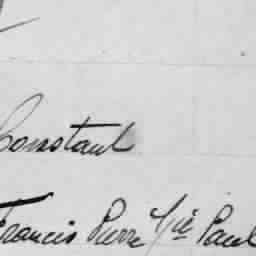 Constant
Francis Pierre Mie Paul